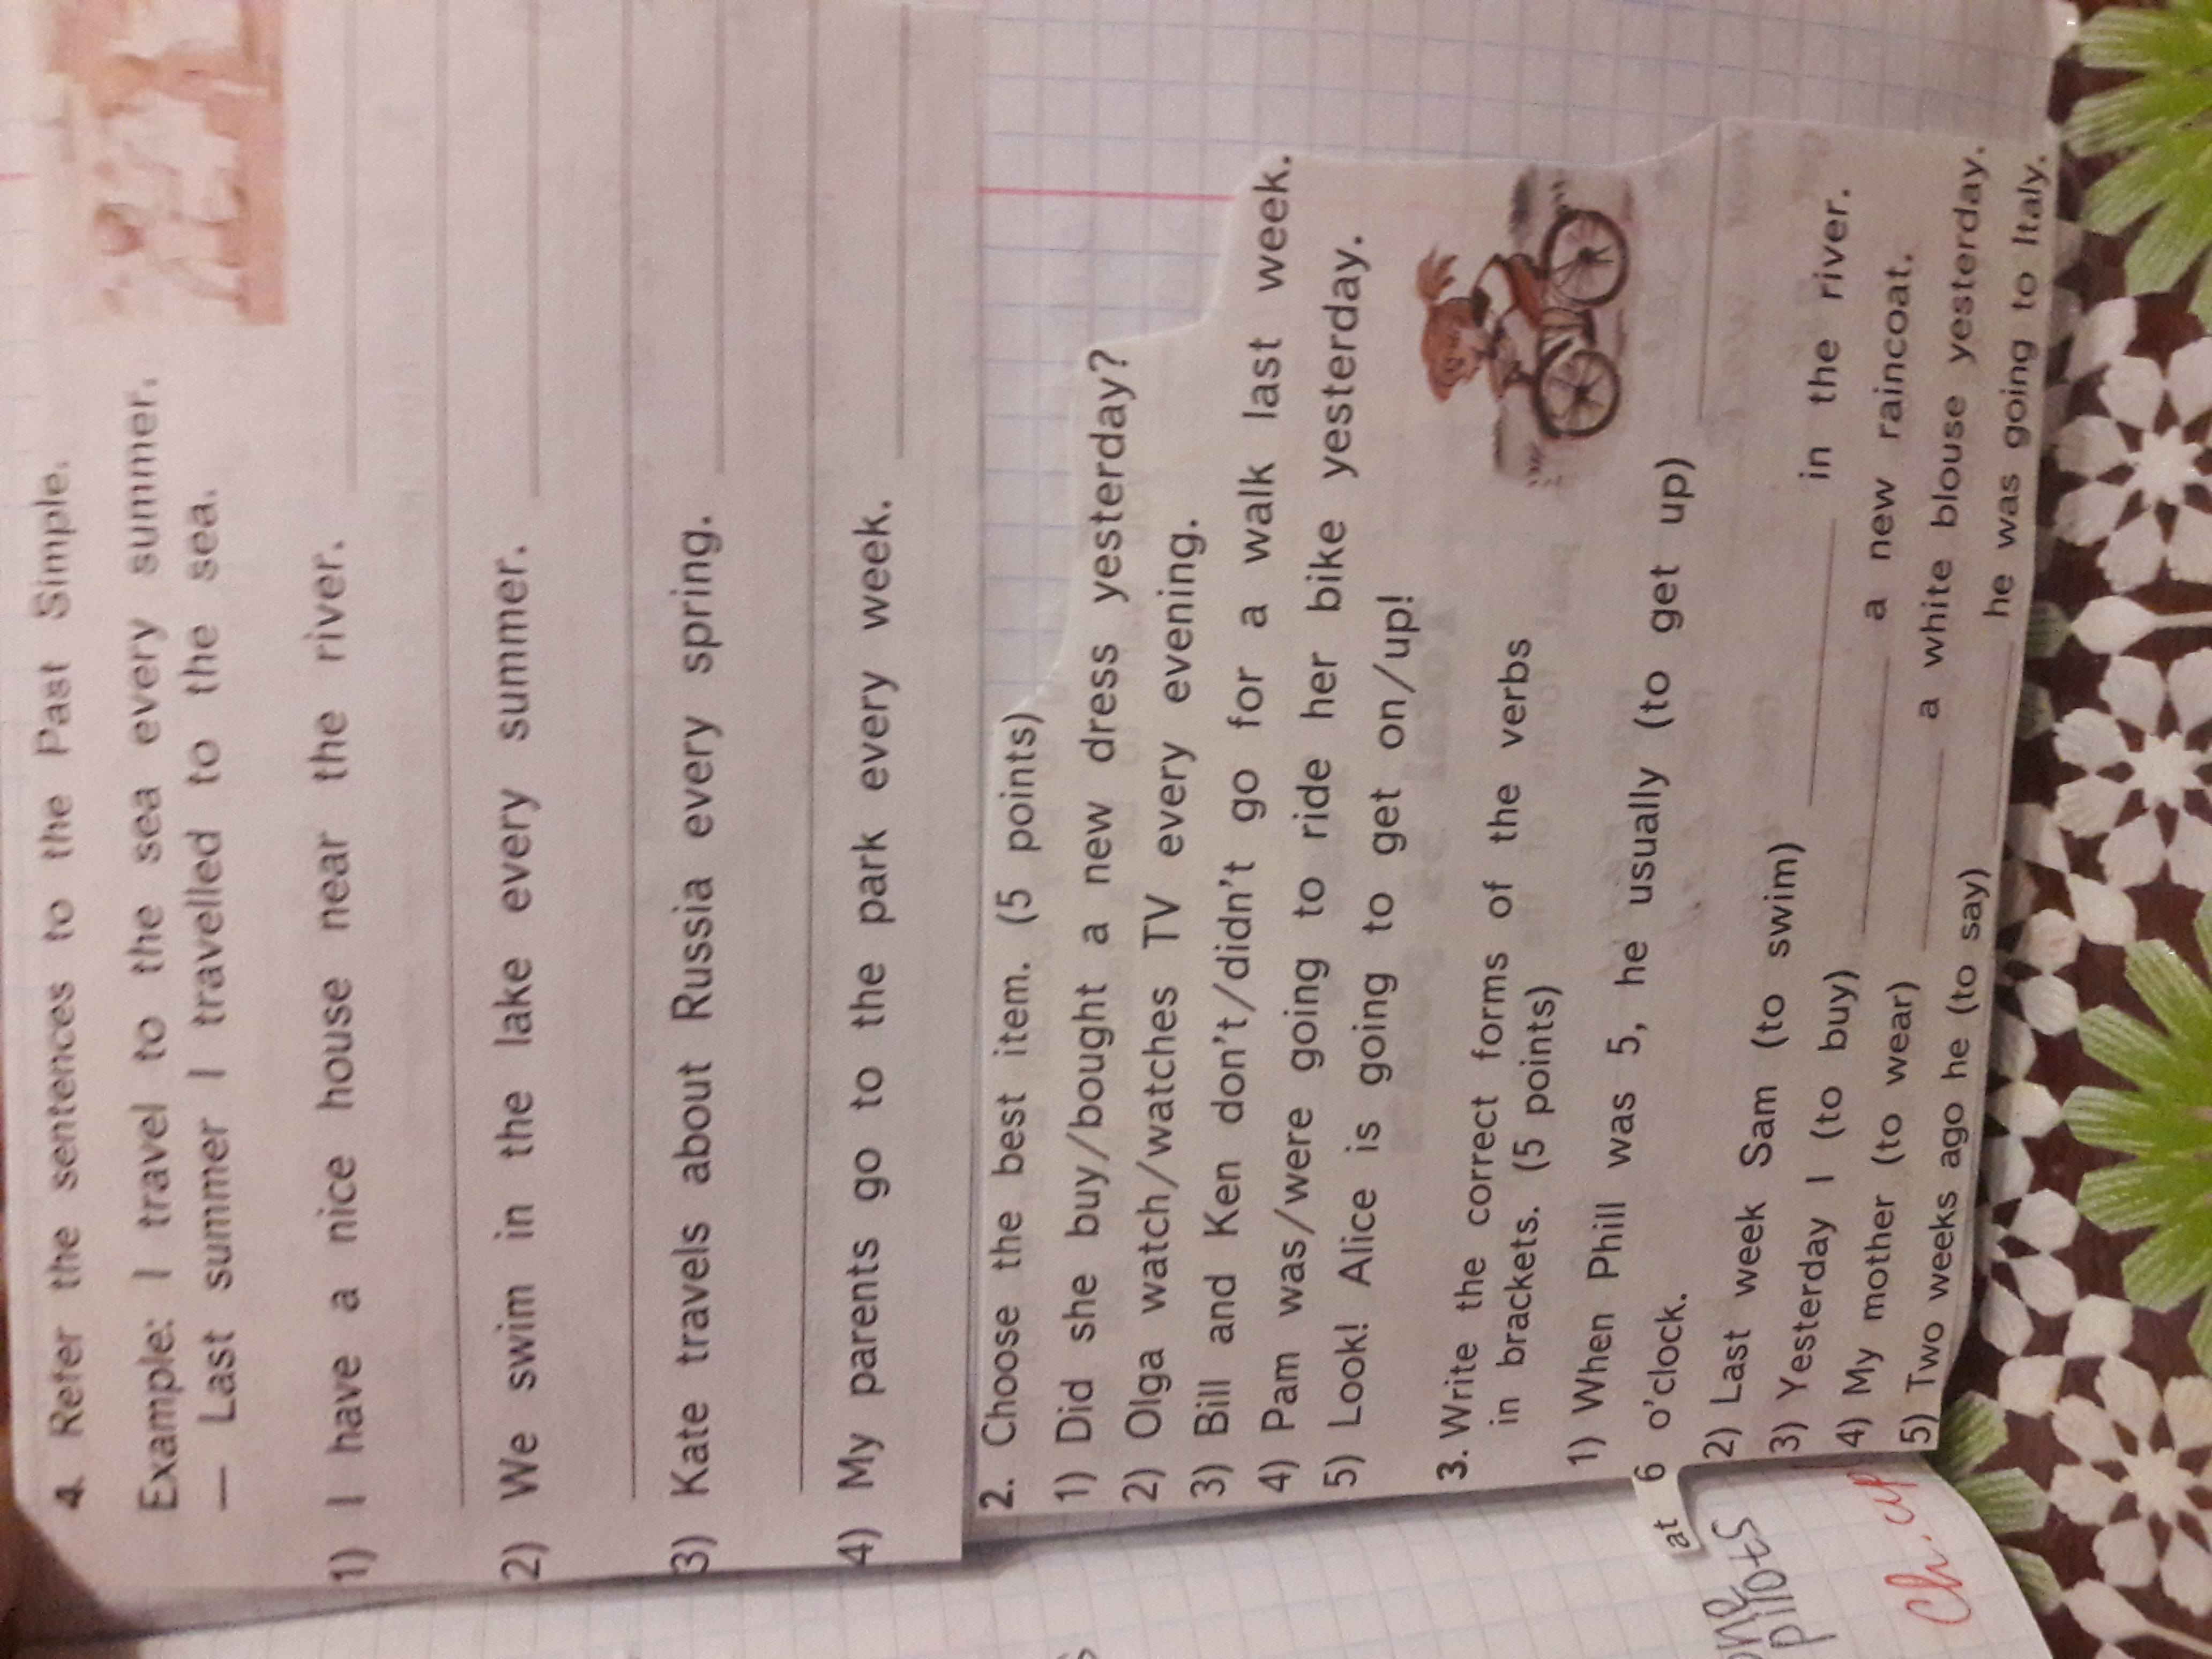 4. Refer the sentences to the Past Simple.
Example: I travel to the sea every summer.
— Last summer I travelled to the sea.
1) I have a nice house near the river.
2) We swim in the lake every summer.
3) Kate travels about Russia every spring.
4) My parents go to the park every week.
2. Choose the best item. (5 points)
1) Did she buy/bought a new dress yesterday?
2) Olga watch/watches TV every evening.
3) Bill and Ken don't/didn't go for a walk last week.
4) Pam was/were going to ride her bike yesterday.
5) Look! Alice is going to get on/up!
3. Write the correct forms of the verbs
in brackets. (5 points)
1) When Phill was 5, he usually (to get up)
at 6 o'clock.
2) Last week Sam (to swim) in the river.
3) Yesterday I (to buy) a new raincoat.
4) My mother (to wear) a white blouse yesterday.
5) Two weeks ago he (to say) he was going to Italy.
pilots